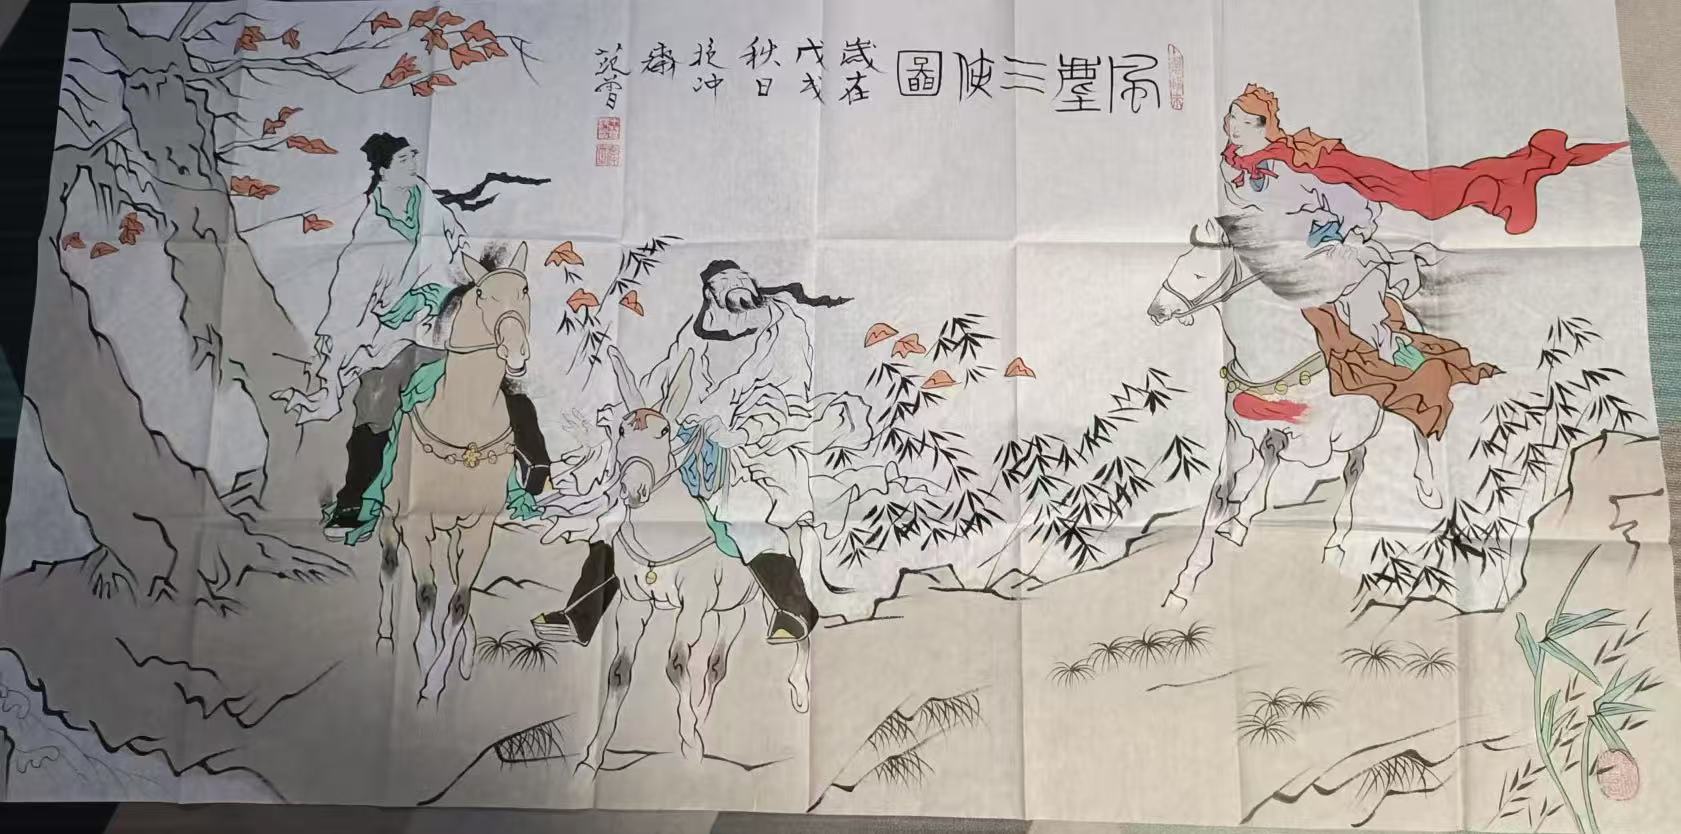 風塵三俠圖
歲在
戊戌
秋日
抱冲
齋
范曾